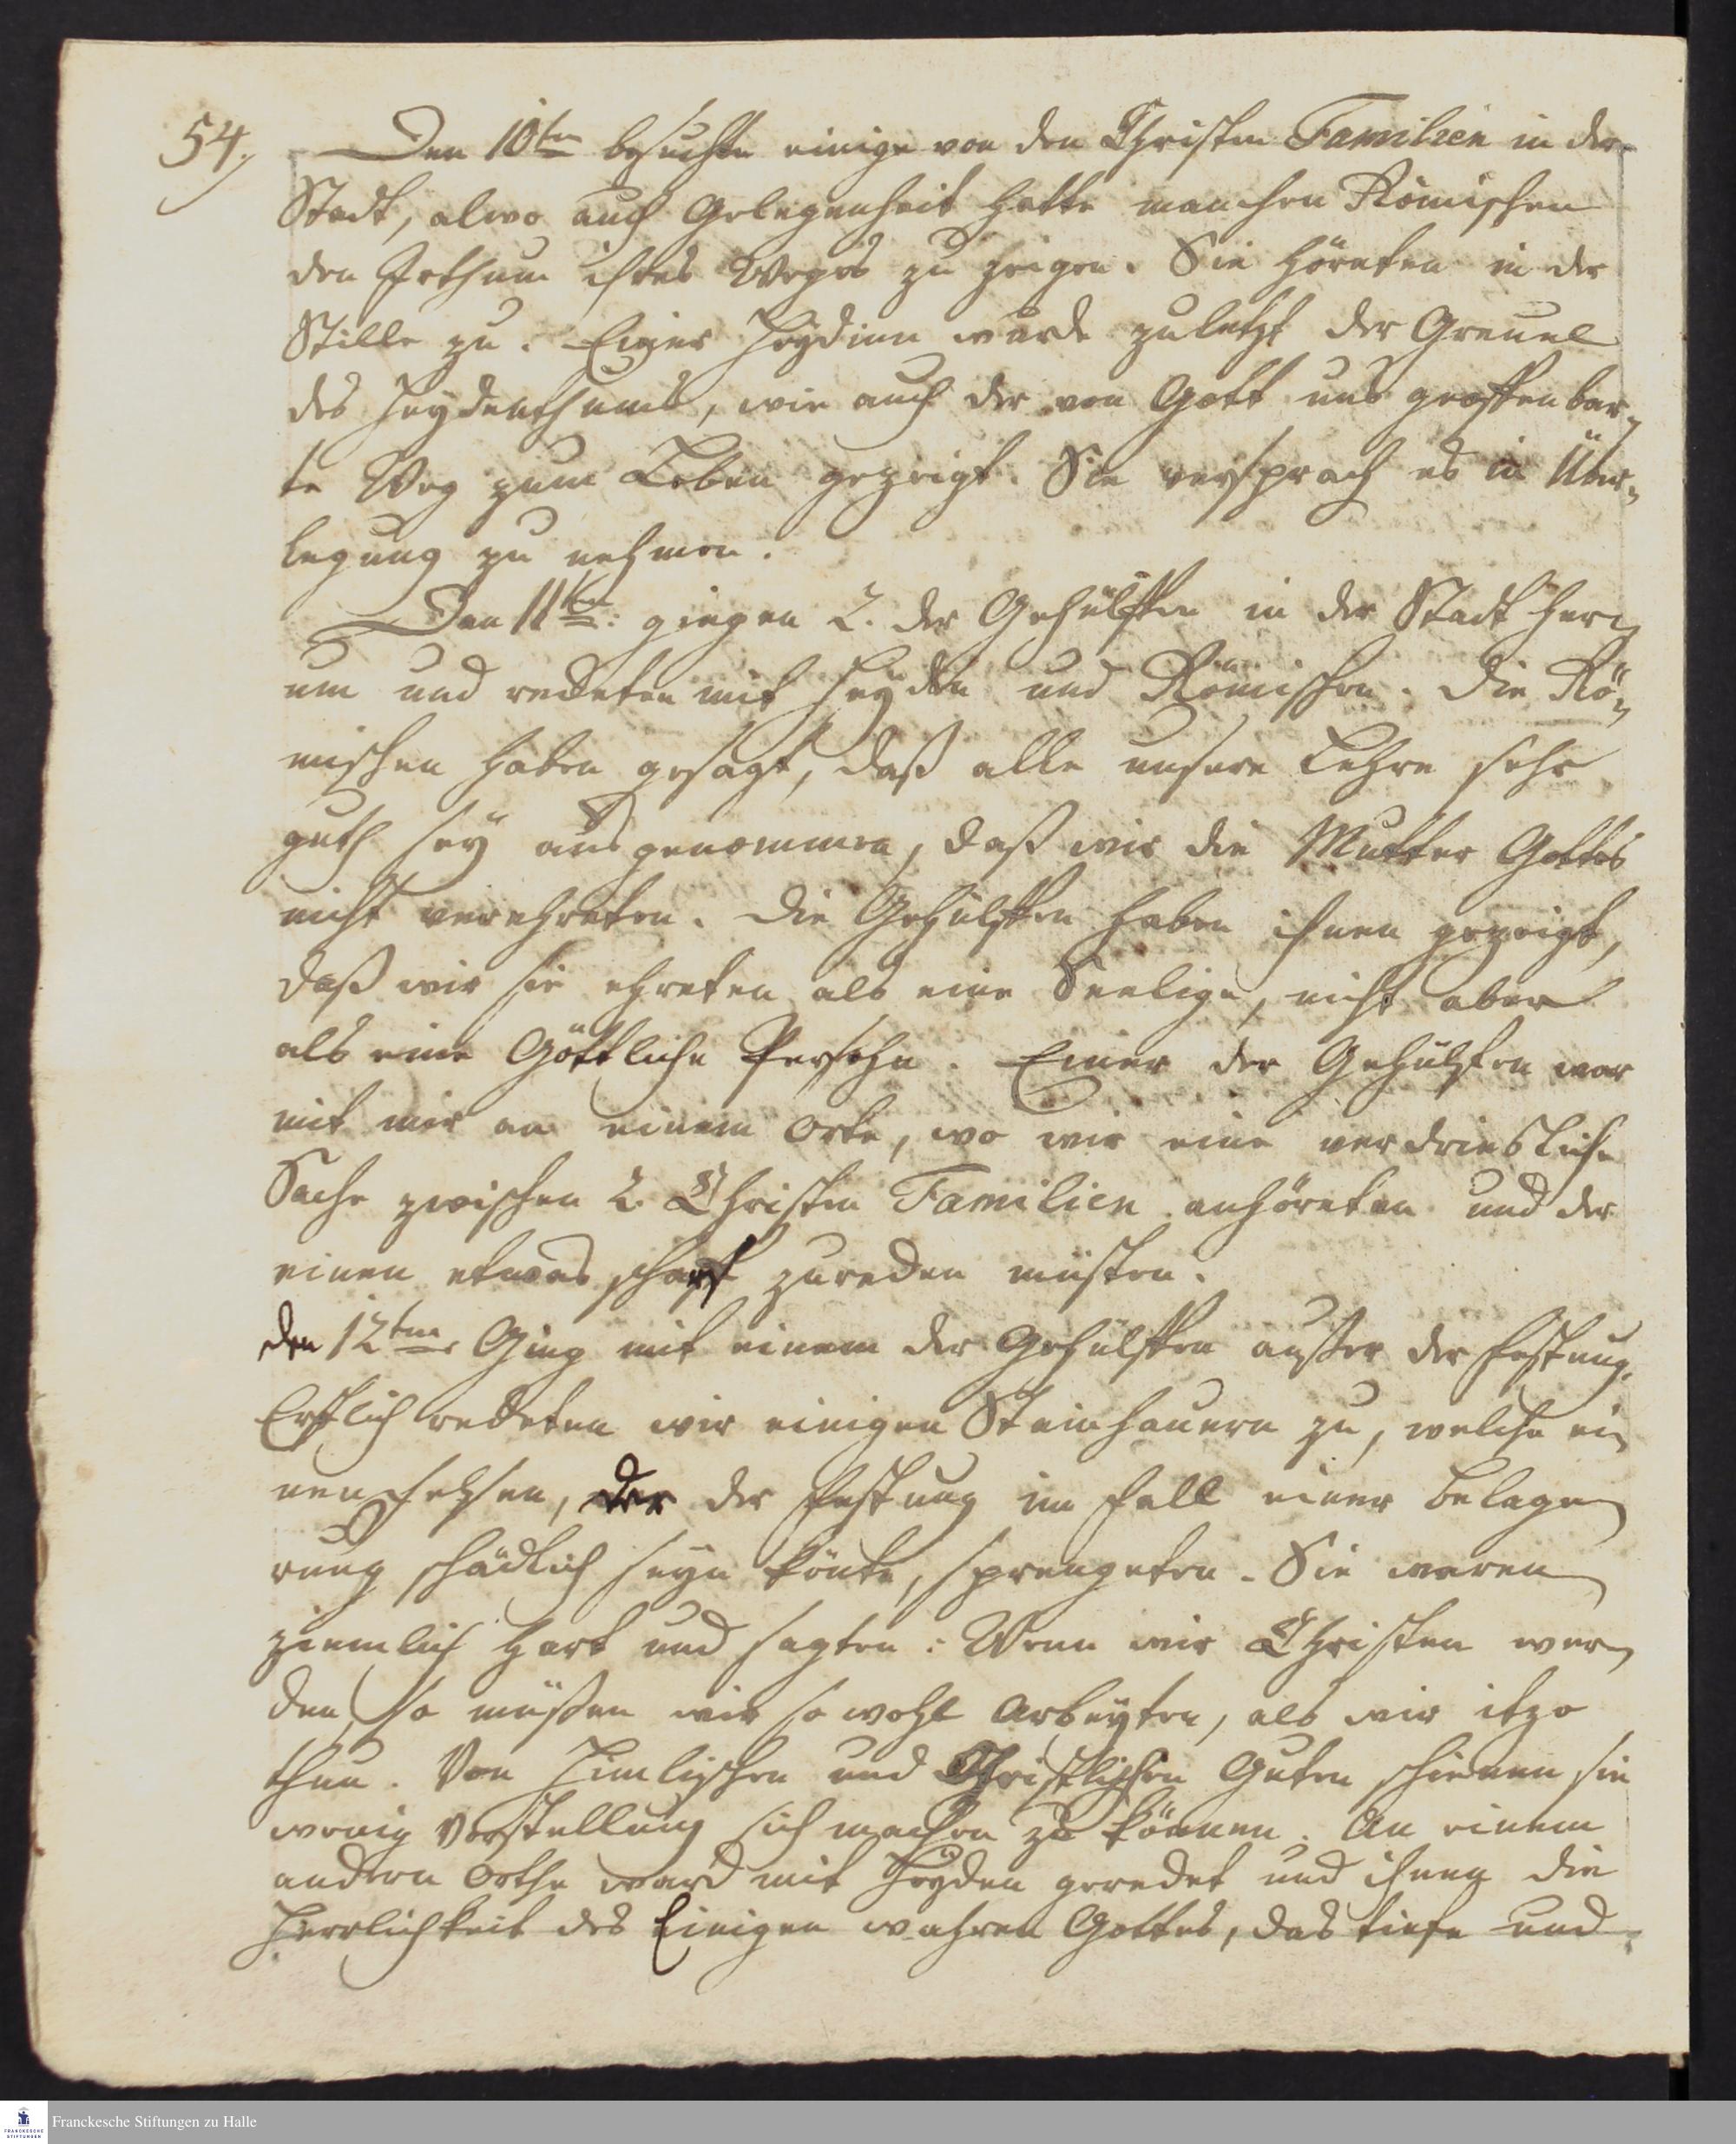 54.
Den 10ten besuchte einige von den Christen Familien in der
Stadt, alwo auch Gelegenheit hatte manchen Römischen
den Irthum ihres Weges zu zeigen. Sie höreten in der
Stille zu. Einer Heydinn wurde zuletzt der Greuel
des Heydenthums, wie auch der von Gott uns geoffenbar-
te Weg zum Leben gezeigt. Sie versprach es in Über-
legung zu nehmen.
Den 11ten: giengen 2. der Gehülffen in der Stadt her-
um und redeten mit Heyden und Römischen. Die Rö-
mischen haben gesagt, daß alle unsere Lehre sehr
guth sey ausgenommen, daß wir die Mutter Gottes
nicht verehreten. Die Gehülffen haben ihnen gezeigt,
daß wir sie ehreten als eine Seelige, nicht aber
als eine Göttliche Persohn. Einer der Gehülfen war
mit mir an einem Orte, wo wir eine verdriesliche
Sache zwischen 2. Christen Familien anhöreten und der
einen etwas scharf zureden müsten.
den 12ten Ging mit einem der Gehülffen außer der Festung.
Erstlich redeten wir einigen Steinhauern zu, welche ei-
nen Felsen, der der Festung im Fall einer Belage-
rung schädlich seyn könte, sprengeten. Sie waren
ziemlich hart und sagten: Wenn wir Christen wer-
den, so müßen wir so wohl Arbeyten, als wir itzo
thun. Von Himlischen und Christlichen Guten schienen sie
wenig Vorstellung sich machen zu können. An einem
andern Orthe ward mit Heyden geredet und ihnen die
Herrlichkeit des Einigen wahren Gottes, das tiefe und
Franckesche Stiftungen zu Halle
FRANCKESCHE
STIFTUNGEN